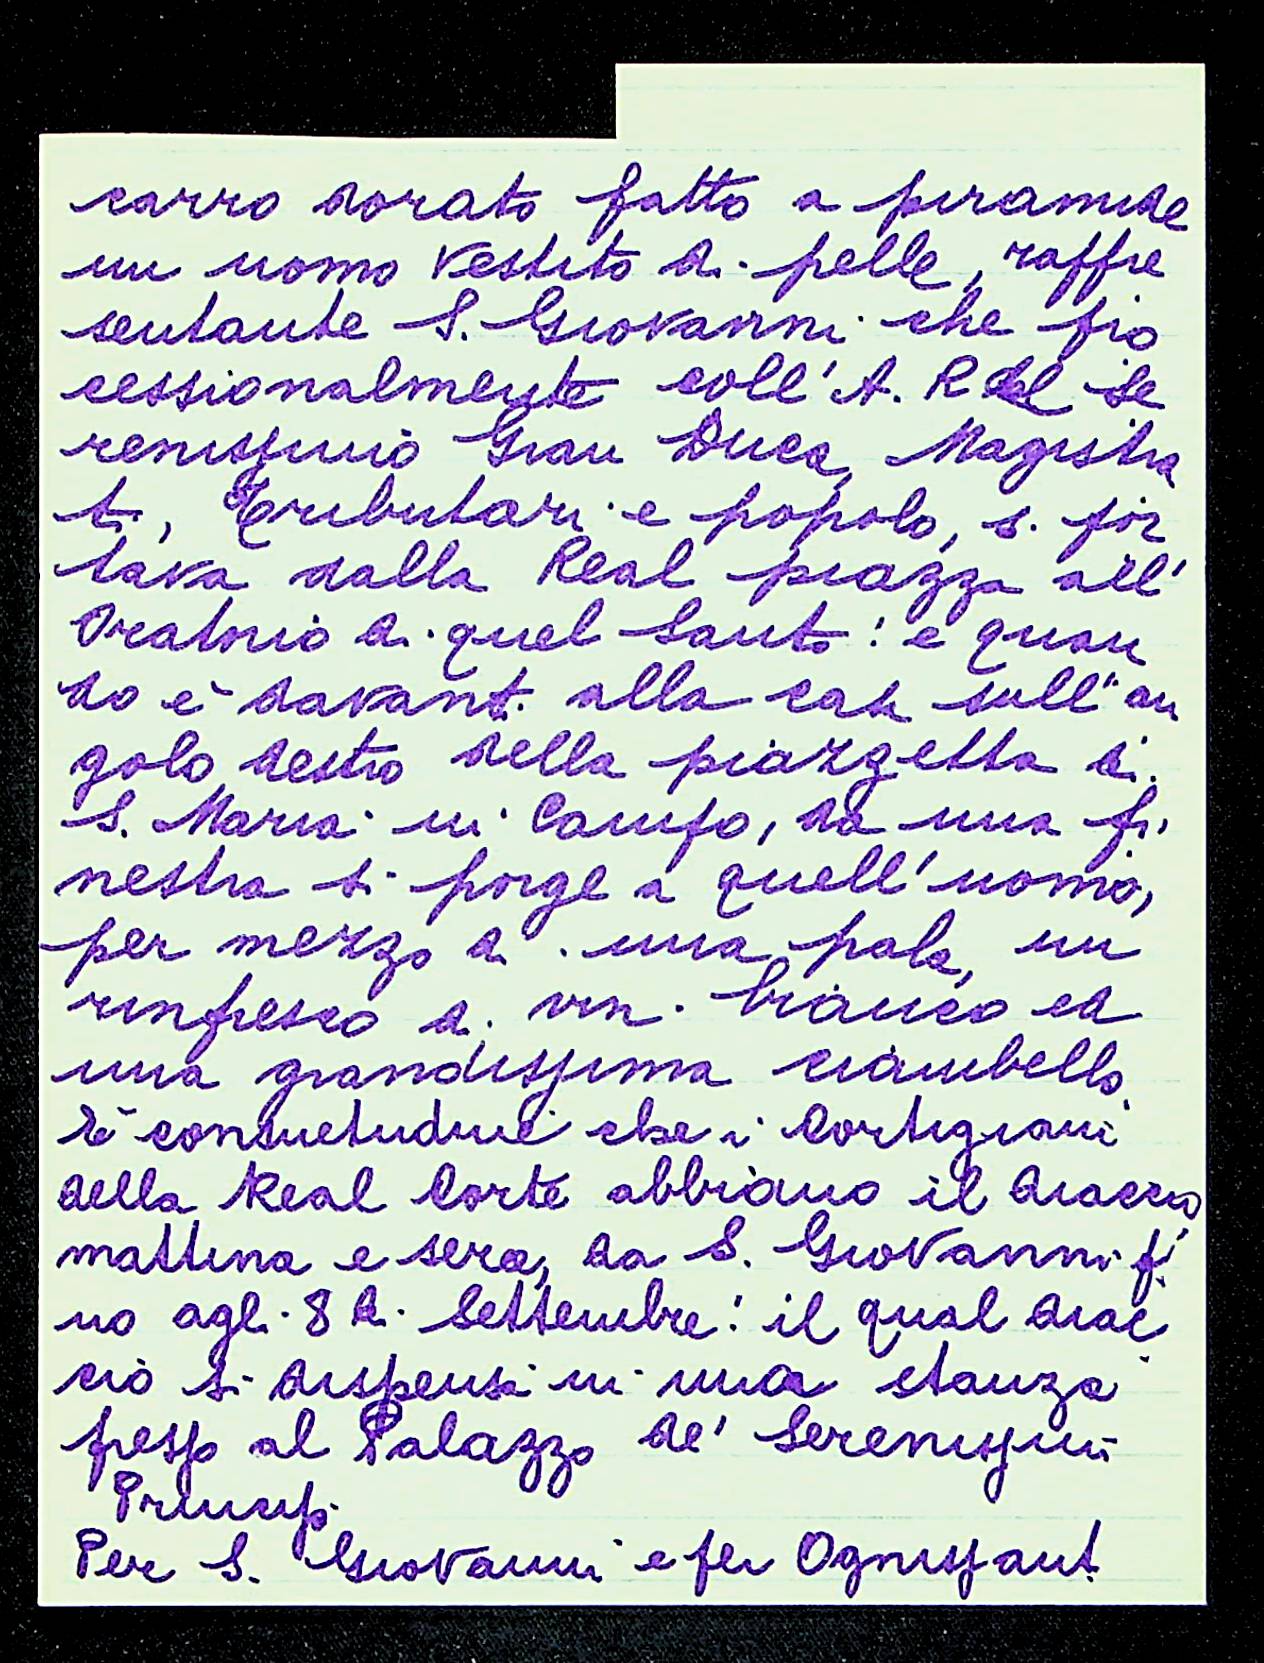 carro dorato fatto a piramide
un uomo vestito di pelle, raffre
sentante S. Giovanni che pro
cessionalmente coll' A. R del Se
renissimo Gran Duca, Magistra
ti, Tributari e popolo, si por
tava dalla Real piazza all'
Oratorio di quel Santo: e quan
do è davanti alla casa sull'an
golo destro della piazzetta di
S. Maria in Campo, da una fi
nestra si porge a quell'uomo,
per mezzo di una pala, un
rinfresco di vin bianco ed
una grandissima ciambella.
È consuetudine che i Cortigiani
della Real Corte abbiano il diaccio
mattina e sera, da S. Giovanni fi
no agli 8 di Settembre: il qual diac
cio si dispensa in una stanza
presso al Palazzo de' Serenissimi
Principi.
Per S. Giovanni e per Ognissanti